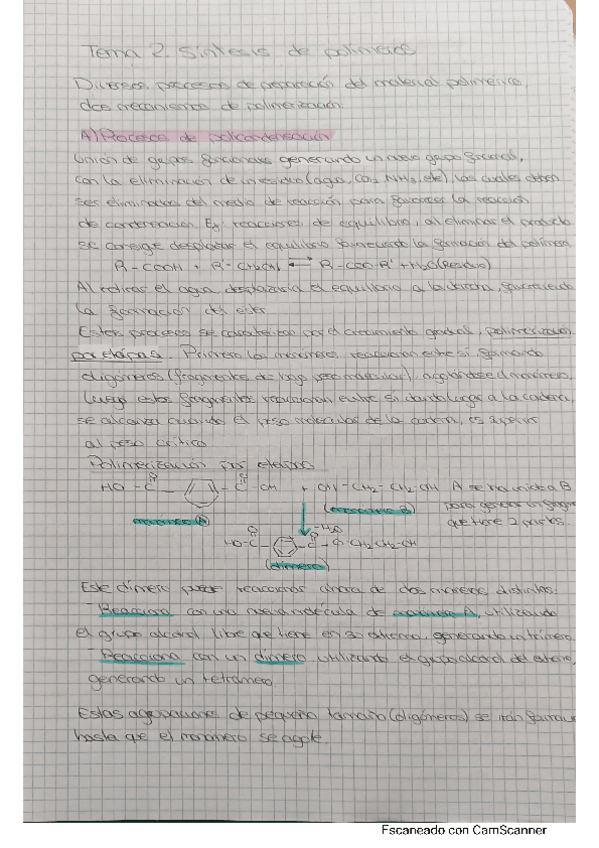 Tema 2. Síntesis de polímeros
Diversos procesos de preparación del material polimérico,
dos mecanismos de polimerización.
A) Proceso de policondensación
Unión de grupos funcionales generando un nuevo grupo funcional,
con la eliminación de un residuo (agua, CO2, NH3, etc), los cuales deben
ser eliminados del medio de reacción para favorecer la reacción
de condensación. Ej: reacciones de equilibrio, al eliminar el producto
se consigue desplazar el equilibrio favoreciendo la formación del polímero,
R-COOH + R'-CH2OH ⇌ R-COO-R' + H2O (Residuo)
Al retirar el agua, desplazaría el equilibrio a la derecha, favoreciendo
la formación del éster
Estos procesos se caracterizan por el crecimiento gradual, polimerización
por etapas. Primero los monómeros reaccionan entre sí, formando
oligómeros (fragmentos de bajo peso molecular), agotándose el monómero,
luego estos fragmentos reaccionan entre sí dando lugar a la cadena,
se alcanza cuando el peso molecular de la cadena, es superior
al peso crítico
Polimerización por etapas
HO - C - - C - OH + OH-CH2-CH2-OH A se ha unido a B
O O
monómero A) (monómero B) para generar un
que tiene 2
-H2O
HO-C- -C-O-CH2CH2-OH
(dímero)
Este dímero puede reaccionar ahora de dos maneras distintas:
- Reacciona con una nueva molécula de monómero A, utilizando
el grupo alcohol libre que tiene en su extremo, generando un trímero
- Reacciona con un dímero utilizando el grupo alcohol del extremo,
generando un tetrámero
Estas agrupaciones de pequeño tamaño (oligómeros) se irán
hasta que el monómero se agote.
Escaneado con CamScanner